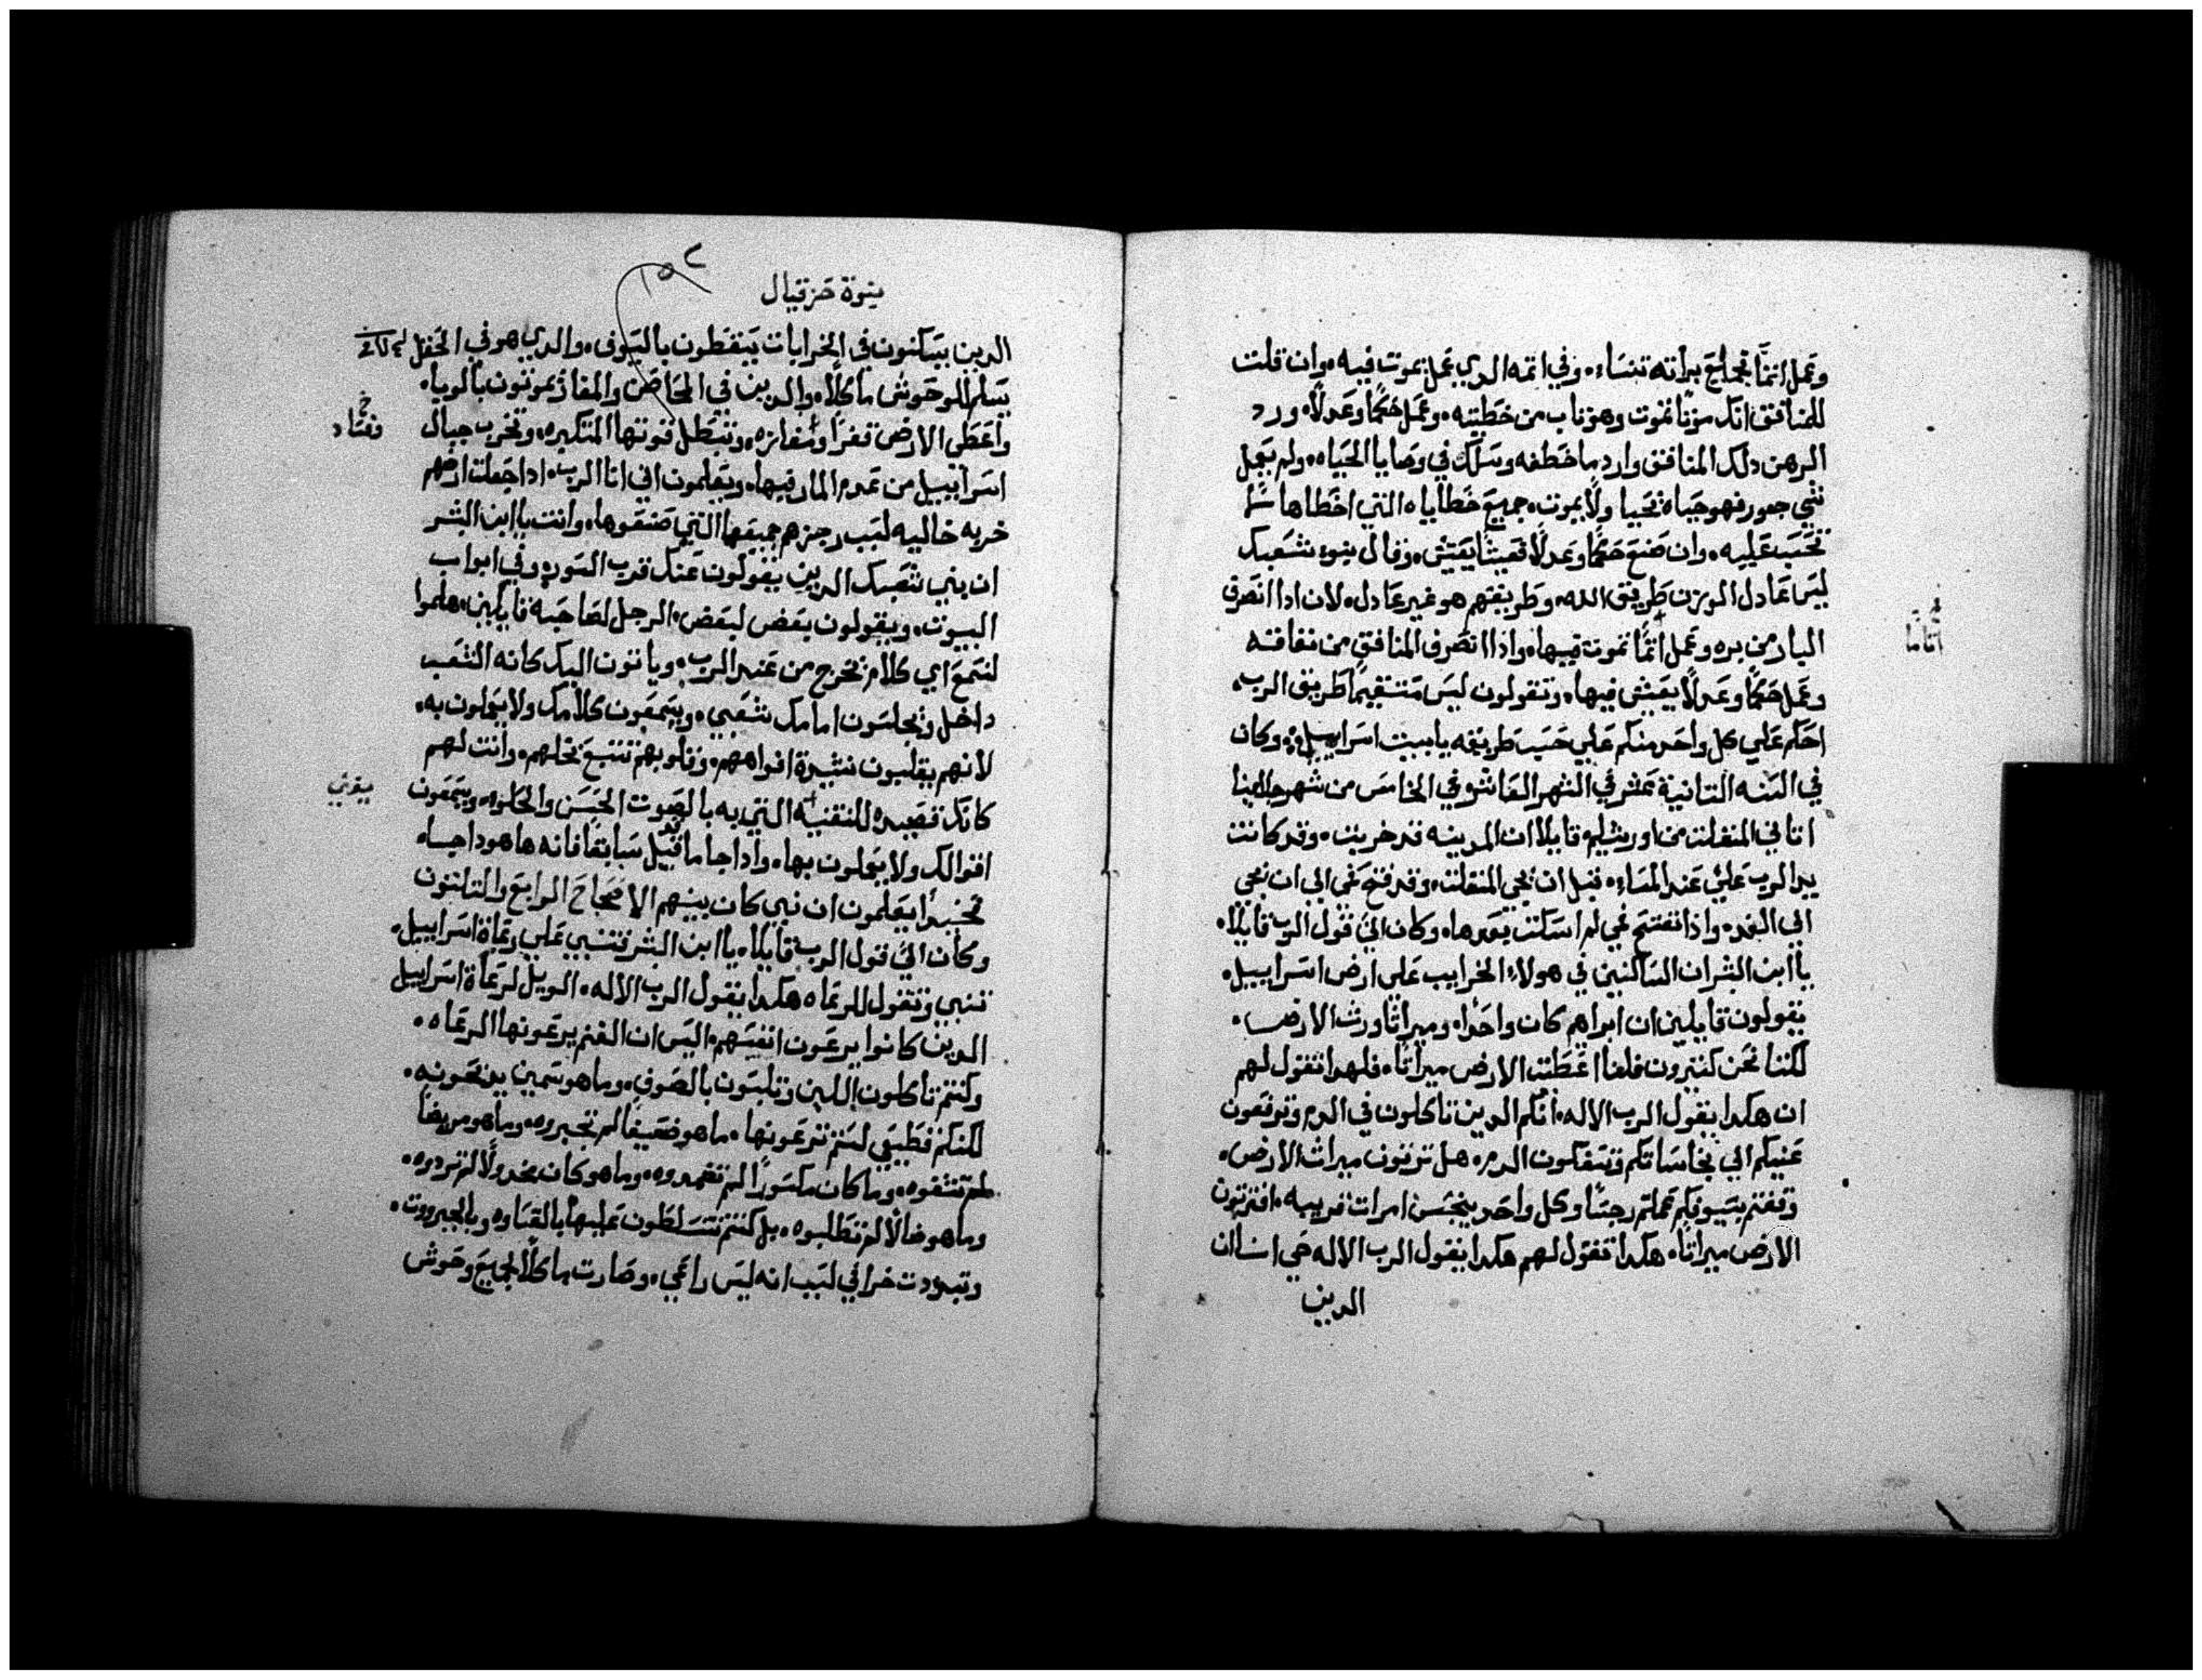 وعمل اتمًا فجميع براته تنساء وفي اتمه الدي عمل يموت فيه وان قلت
للمنافق انك موتًا تموت وهو تاب من خطيته وعمل حكمًا وعدلًا ورد
الرهن دلك المنافق وارد ما خطفه وسلك في وصايا الحياه ولم يعمل
شي جور فهو حياة يحيا ولا يموت جميع خطاياه التي اخطاها لا
تحسب عليه وان صنع حكمًا وعدلًا فعيشًا يعيش وقال بنوء شعبك
ليس عادل الوزن طريق الله وطريقهم هو غير عادل لان ادا انصرف
البار من بره وعمل اتمًا يموت فيها واذا انصرف المنافق من نفاقته
وعمل حكمًا وعدلًا يعيش فيها وتقولون ليس مستقيمًا طريق الرب
احكم علي كل واحد منكم علي حسب طريقه يا بيت اسراييل وكان
في السنه التانية عشر في الشهر العاشر في الخامس من شهر جلاينا
اتاني المنفلت من اورشليم قايلا ان المدينه قد خربت وقد كانت
يد الرب علي عند المساء قبل ان يجي المنفلت وقد فتح فمي الي ان يجي
الي الغد واذا نفتح فمي لم اسكت بعدها وكان الي قول الرب قايلا
يا ابن البشر ان الساكنين في هولاء الخرايب علي ارض اسراييل
يقولون قايلين ان ابراهيم كان واحدا وميراثًا ورث الارض
لكننا نحن كتيرون فلنا اعطت الارض ميراثًا فلهدا تقول لهم
ان هكدا يقول الرب الاله انكم الدين تاكلون في الدم وترفعون
عنيكم الي نجاساتكم وتسفكون الدم هل ترتون ميراث الارض
وقفتم بسيوفكم عملتم رجسًا وكل واحد ينجس امرات قريبه افترتون
الارض ميراثًا هكدا تقول لهم هكدا يقول الرب الاله حي انا ان
الدين
نبوة حزقيال
الدين يسكنون في الخرابات يسقطون بالسوف والدي هو في الحقل
يسلم للوحوش ماكلًا والدين في الحاض والمغاز يموتون بالوباء
واعطي الارض قفرًا ومفازه وتبطل قوتها المتكبره وتخرب جبال
اسراييل من عدم المار فيها ويعلمون اني انا الرب ادا جعلت ارضهم
خربه خاليه لسبب رجزهم جميعها التي صنعوها وانت يا ابن البشر
ان بني شعبك الدين يقولون عنك قرب السور وفي ابواب
البيوت ويقولون بعض لبعض الرجل لصاحبه قايلين هلموا
لنسمع اي كلام تخرج من عند الرب وياتون اليك كانه الشعب
داخل ويجلسون امامك شعبي ويسمعون كلامك ولا يعملون به
لانهم يقلبون نشيدة افواههم وقلوبهم تتبع بخلهم وانت لهم
كانك قصيده للتقنيه التي به بالصوت الحسن والحلوه ويسمعون
اقوالك ولا يعملون بها وادا جا ما قيل سابقا فانه ها هودا جياء
تحنيدا يعلمون ان نبي كان بينهم الاصحاح الرابع والتلتون
وكان الي قول الرب قايلا يا ابن البشر تنبي علي رعاة اسراييل
تنبي وتقول للرعاه هكدا يقول الرب الاله الويل لرعاة اسراييل
الدين كانوا يرعون انفسهم اليس ان الغنم يرعونها الرعاه
وكنتم تاكلون اللبن وتلبسون بالصوف وما هو سمين يدبحونه
لكنكم قطيعي لستم ترعونها ما هو ضعيفا لم تجبروه وما هو مريضا
لم تشفوه وما كان مكسورًا لم تضمدوه وما هو كان مخدولًا لم تردوه
وما هو ضالًا لم تطلبوه بل كنتم تتسلطون عليها بالقساوه وبالجبروت
وتبددت خرافي لسبب انه ليس راعي وصارت ماكلًا لجميع وحوش